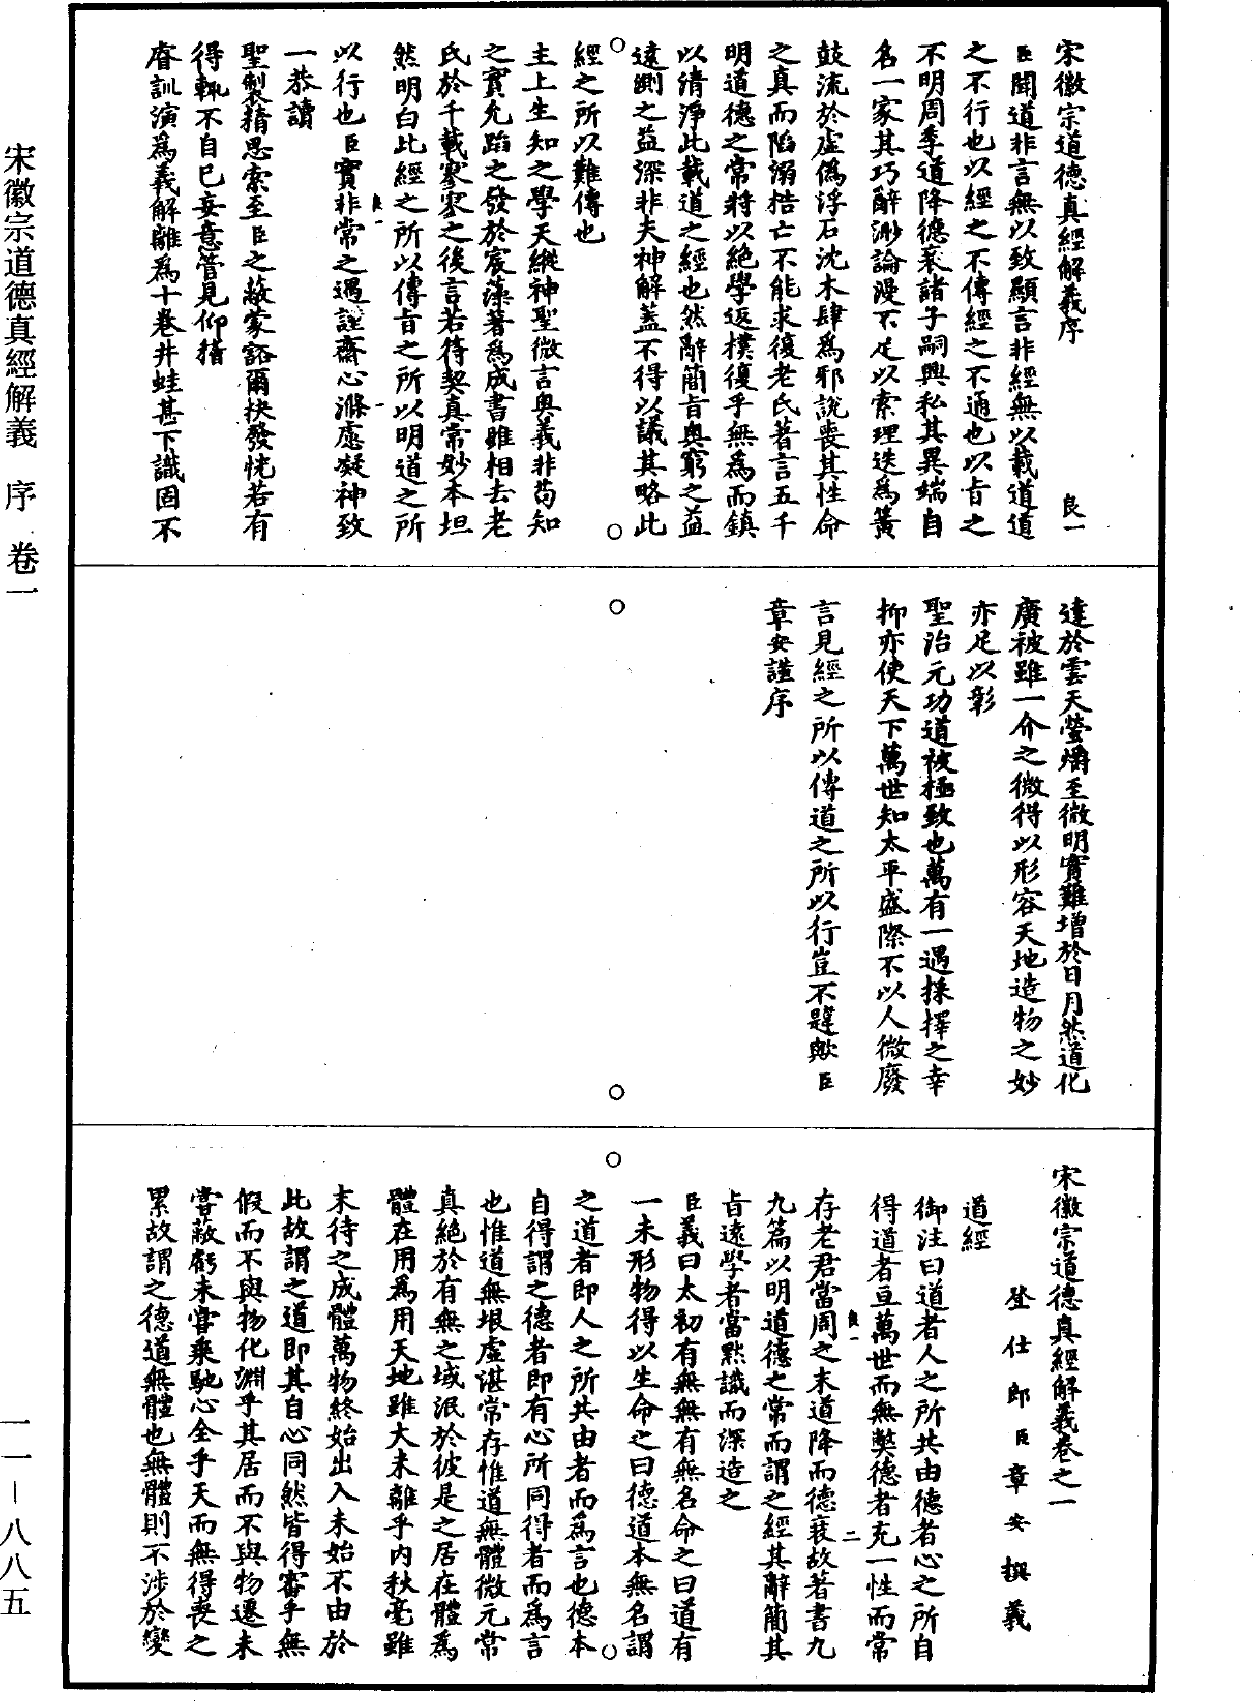 宋徽宗道德真經解義 序 卷一
一一—八八五
宋徽宗道德真經解義序 良一
臣聞道非言無以致顯言非經無以載道道
之不行也以經之不傳經之不通也以旨之
不明周季道降德衰諸子嗣興私其異端自
名一家其巧辭渺論漫不足以索理迭為簧
鼓流於虛偽浮石沈木肆為邪說喪其性命
之真而陷溺梏亡不能求復老氏著言五千
明道德之常將以絕學返樸復乎無為而鎮
以清淨此載道之經也然辭簡旨奧窮之益
遠測之益深非夫神解蓋不得以議其略此
經之所以難傳也
主上生知之學天縱神聖微言奧義非苟知
之實允蹈之發於宸藻著為成書雖相去老
氏於千載寥寥之後言若符契真常妙本坦
然明白此經之所以傳旨之所以明道之所
良一 一
以行也臣實非常之遇謹齋心滌慮凝神致
一恭讀
聖製精思索至臣之蔽蒙豁爾抉發恍若有
得輒不自已妄意管見仰揩
睿訓演為義解離為十卷井蛙甚下識固不
達於雲天螢爝至微明實難增於日月然道化
廣被雖一介之微得以形容天地造物之妙
亦足以彰
聖治元功道被極致也萬有一遇採擇之幸
抑亦使天下萬世知太平盛際不以人微廢
言見經之所以傳道之所以行豈不韙歟臣
章安謹序
宋徽宗道德真經解義卷之一
登仕郎臣章安撰義
道經
御注曰道者人之所共由德者心之所自
得道者亘萬世而無弊德者充一性而常
存老君當周之末道降而德衰故著書九
良一 二
九篇以明道德之常而謂之經其辭簡其
旨遠學者當默識而深造之
臣義曰太初有無無有無名命之曰道有
一未形物得以生命之曰德道本無名謂
之道者即人之所共由者而為言也德本
自得謂之德者即有心所同得者而為言
也惟道無垠虛湛常存惟道無體微元常
真絕於有無之域泯於彼是之居在體為
體在用為用天地雖大未離乎內秋毫雖
末待之成體萬物終始出入未始不由於
此故謂之道即其自心同然皆得審乎無
假而不與物化淵乎其居而不與物遷未
嘗蔽虧未嘗乘馳心全乎天而無得喪之
累故謂之德道無體也無體則不涉於變